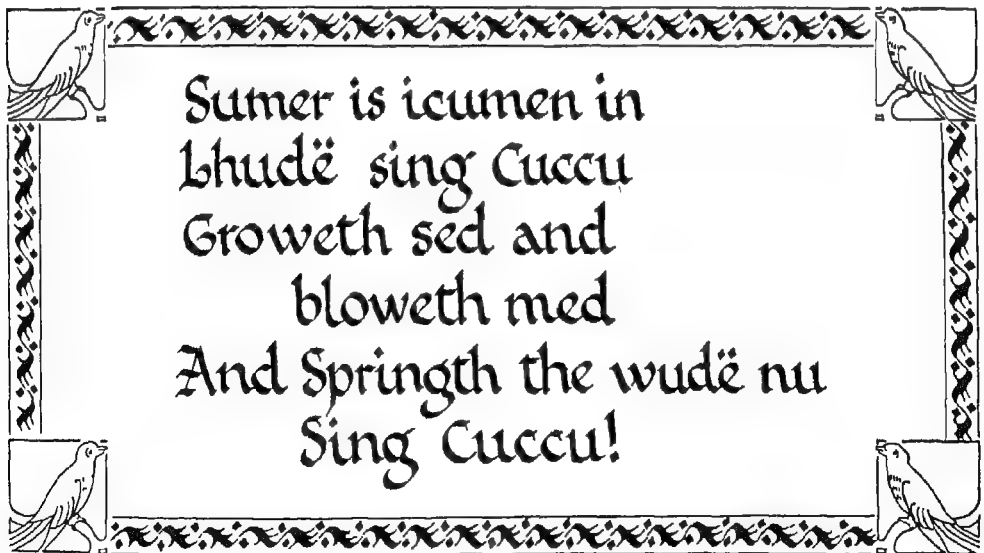 Sumer is icumen in
Lhudë sing Cuccu
Groweth sed and
bloweth med
And Springth the wudë nu
Sing Cuccu!